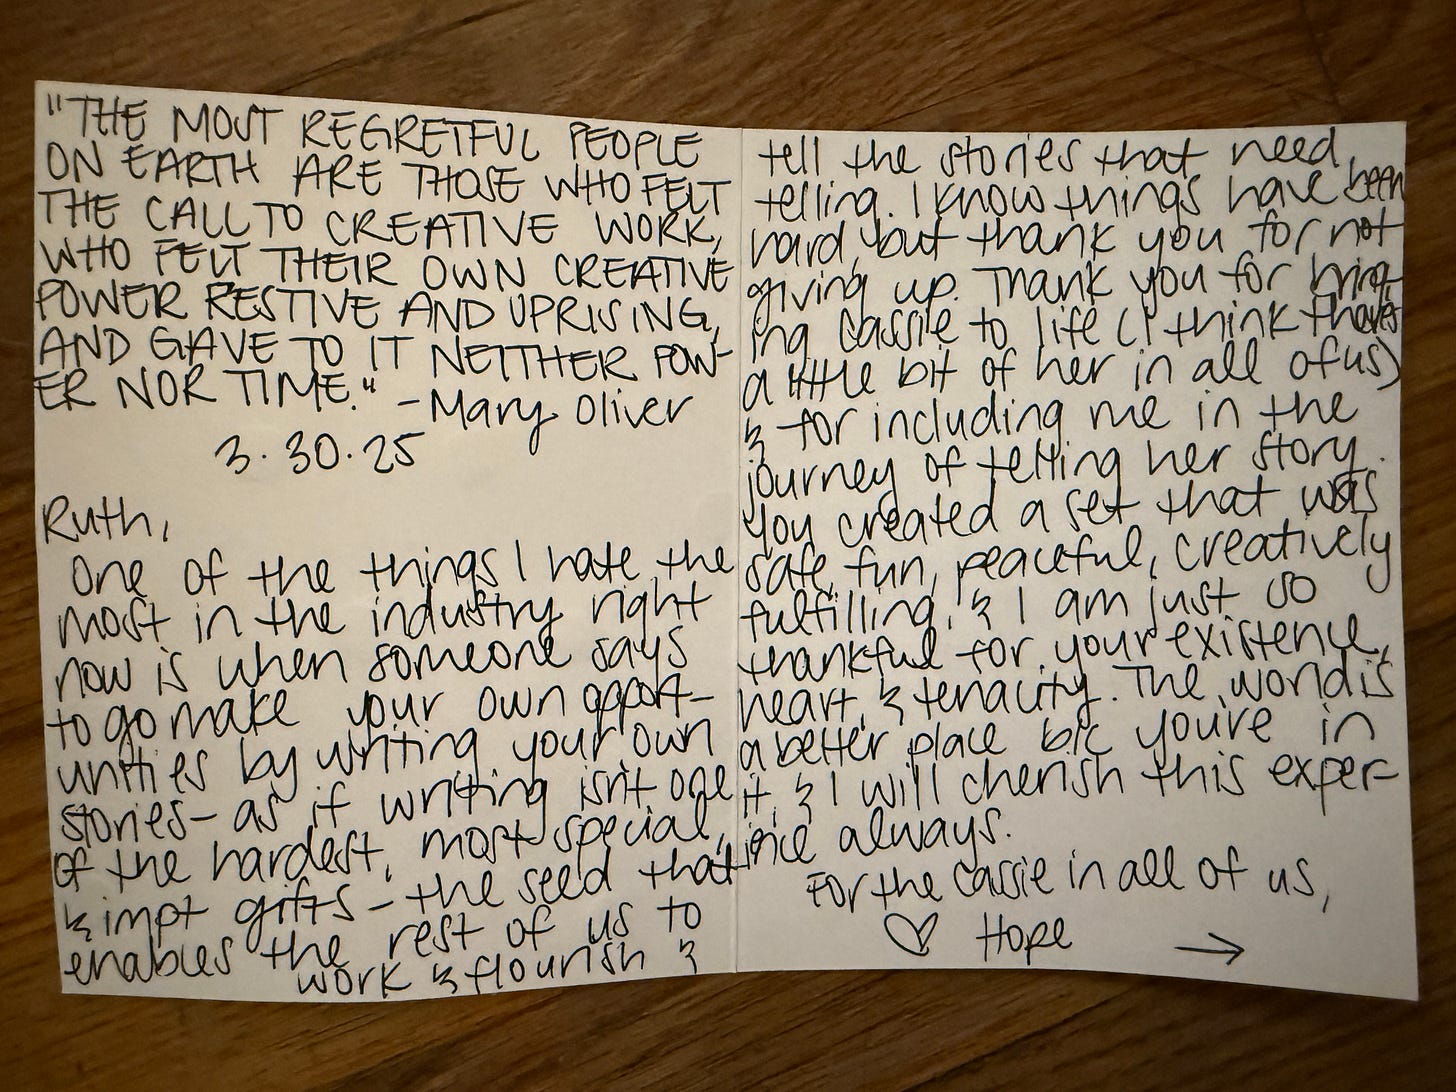 "THE MOST REGRETFUL PEOPLE
ON EARTH ARE THOSE WHO FELT
THE CALL TO CREATIVE WORK,
WHO FELT THEIR OWN CREATIVE
POWER RESTIVE AND UPRISING,
AND GAVE TO IT NEITHER POW-
ER NOR TIME." - Mary Oliver
3.30.25
Ruth,
One of the things I hate the
most in the industry right
now is when someone says
to go make your own opport-
unities by writing your own
stories - as if writing isn't one
of the hardest, most special,
& impt gifts - the seed that
enables the rest of us to
work & flourish &
tell the stories that need
telling. I know things have been
hard, but thank you for not
giving up. Thank you for bring-
ing Cassie to life (I think there's
a little bit of her in all of us)
& for including me in the
journey of telling her story.
You created a set that was
safe, fun, peaceful, creatively
fulfilling, & I am just so
thankful for your existence,
heart, & tenacity. The world is
a better place b/c you're in
it, & I will cherish this exper-
ience always.
For the Cassie in all of us,
♡ Hope →